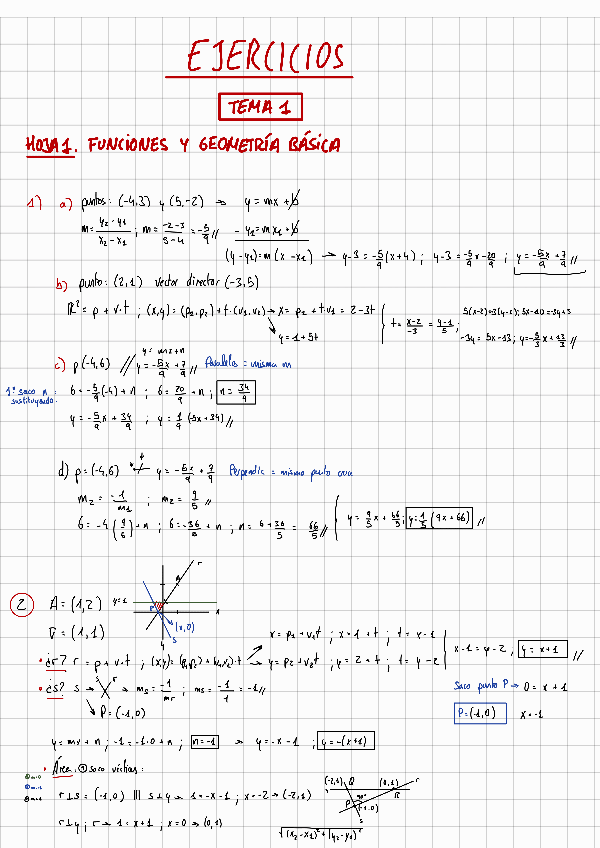 EJERCICIOS
TEMA 1
HOJA 1. FUNCIONES Y GEOMETRÍA BÁSICA
1) a) puntos: (-4,3) y (5,-2) → y = mx + b
m = (y₂ - y₁)/(x₂ - x₁) ; m = (-2-3)/(5-4) = -5/9 // - y₁ = mx₁ + b
(y - y₁) = m (x - x₁) → y-3 = -5/9 (x+4) ; y-3 = -5/9 x - 20/9 ; y = -5x/9 + 7/9 //
b) punto: (2,1) vector director (-3,5)
ℝ² = p + v·t ; (x,y) = (p₁,p₂) + t·(v₁,v₂) → x = p₁ + t·v₁ = 2-3t
y = 1+5t
t = (x-2)/-3 = (y-1)/5 ;
c) p(-4,6) // y = -5x/9 + 7/9 // Paralelas = misma m
y = mx+n
1º saco n sustituyendo.
6 = -5/9(-4) + n ; 6 = 20/9 + n ; n = 34/9
y = -5/9 x + 34/9 ; y = 1/9 (-5x+34) //
d) p = (-4,6) y = -5x/9 + 7/9 Perpendic = mismo punto
m₂ = -1/m₁ ; m₂ = 9/5 //
6 = -4 (9/5) + n ; 6 = -36/5 + n ; n = 6 + 36/5 = 66/5 //
y = 9/5 x + 66/5 ; y = 1/5 (9x+66) //
2 A = (1,2) y=1
v = (1,1)
r
(x,0)
s
• ¿r? r = p + v·t ; (x,y) = (p₁,p₂) + (v₁,v₂)·t
x = p₁ + v₁t ; x = 1 + t ; t = x-1
y = p₂ + v₂t ; y = 2 + t ; t = y-2
x-1 = y-2 , y = x+1 //
• ¿s? s → → ms = -1/mr ; ms = -1/1 = -1 //
P = (-1,0)
Saco punto P → 0 = x+1
P = (-1,0) x = -1
y = mx + n ; -1 = -1·0 + n ; n=-1 → y = -x-1 ; y = -(x+1)
• Área. ① saco vértices:
r⊥s = (-1,0) s⊥y → 1 = -x-1 ; x = -2 → (-2,1)
r⊥y ; r → 1 = x+1 ; x=0 → (0,1)
(-2,1) Q (0,1) r
R
P 90° (-1,0)
s
√((x₂-x₁)² + (y₂-y₁)²